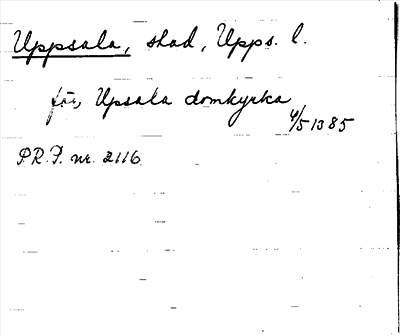 Uppsala, stad, Upps. l.
för Upsala domkyrka
4/5 1385
P.R.P. nr. 2116